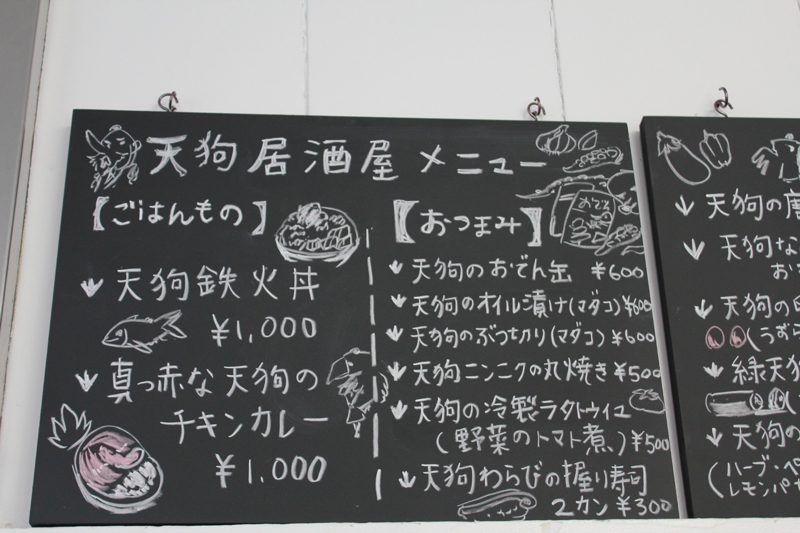 天狗居酒屋メニュー
【ごはんもの】
天狗鉄火丼
¥1,000
真っ赤な天狗の
チキンカレー
¥1,000
【おつまみ】
おでん
天狗のおでん缶 ¥600
天狗のオイル漬け(マダコ)¥600
天狗のぶつ切り(マダコ)¥600
天狗ニンニクの丸焼き¥500
天狗の冷製ラタトゥイユ
(野菜のトマト煮)¥500
天狗わらびの握り寿司
2カン¥300
天狗の
天狗な
お
天狗の
(うずら
緑天狗
天狗の
(ハーブ・ペ
レモンパ